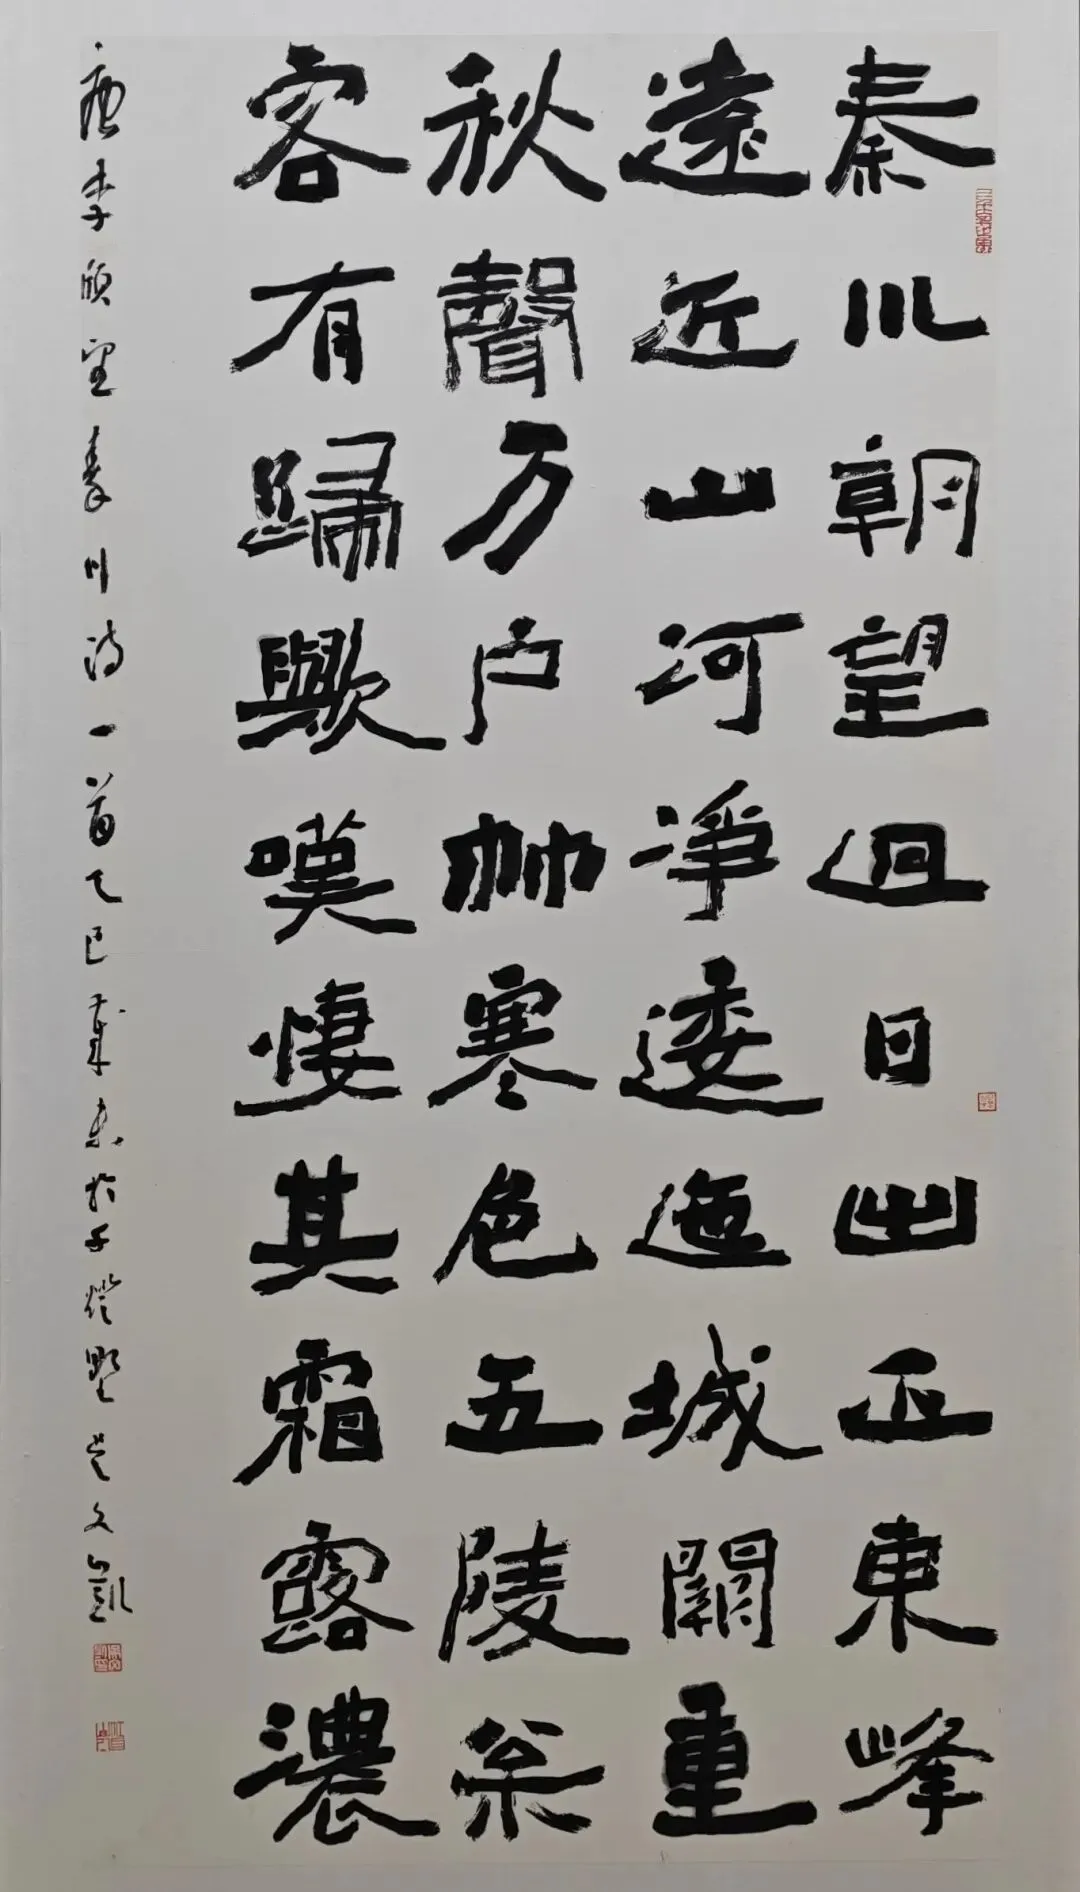 秦川朝望迥日出正東峰
遠近山河淨逶迤城闕重
秋聲万户竹寒色五陵松
客有歸歟嘆悽其霜露濃
唐李頎望秦川詩一首乙巳歲末於子燈野 吳文凱